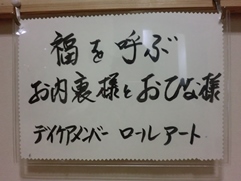 福を呼ぶ
お内裏様とおひな様
デイケアメンバー ロールアート